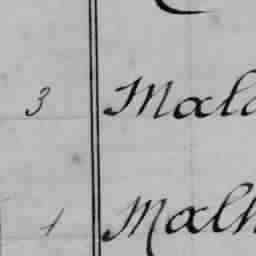 3 Mala
1 Malh